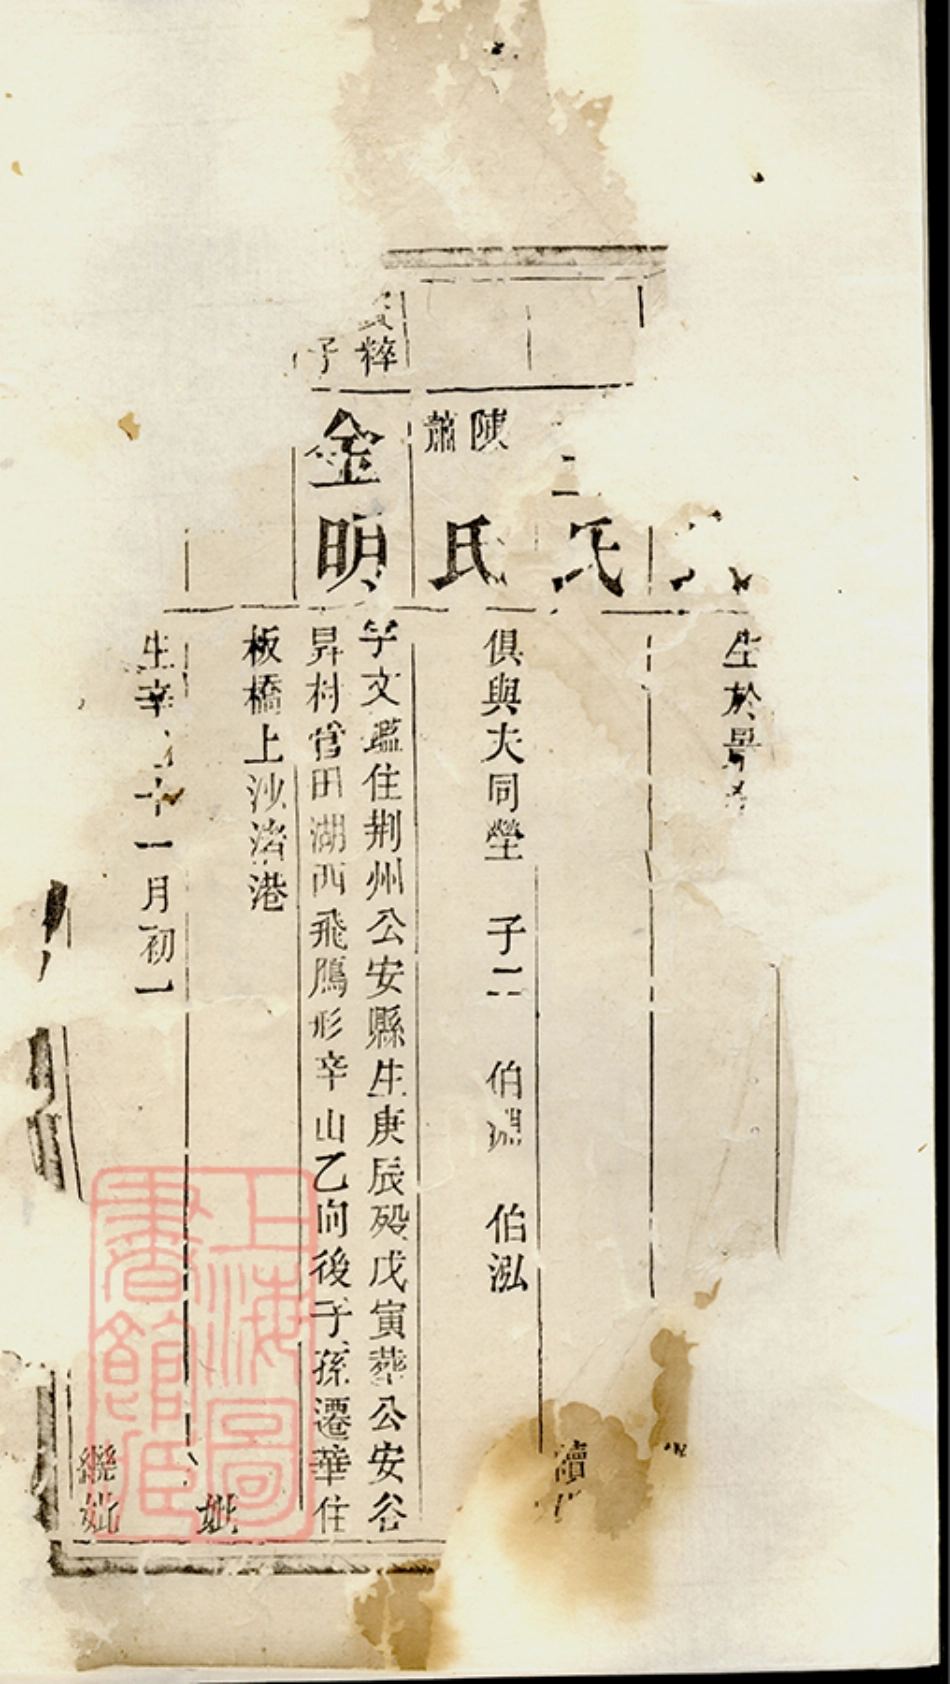 生於
氏
續
陳
蕭
氏
俱與夫同塋 子二 伯 伯泓
粹
子
金明
字文鑑住荆州公安縣生庚辰殁戊寅葬公安公
昇村官田湖西飛鴈形辛山乙向後子孫遷華住
板橋上沙渚港
妣
生辛 十一月初一
繼妣
上海圖書館藏